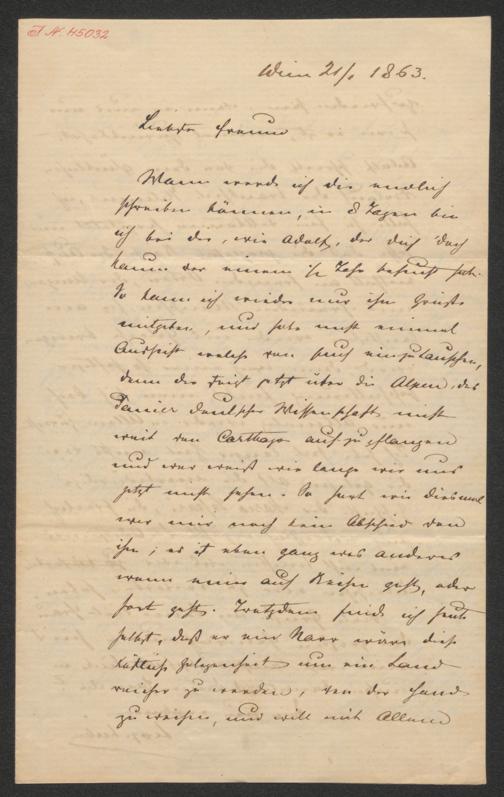 I. N. 45032
Wien 21/1 1863.
Liebster Freund
Wann werde ich dir endlich
schreiben können, in 8 Tagen bin
ich bei dir, wie Adolf, der dich doch
kaum vor einem 1/2 Jahr besucht hat.
So kann ich wieder nur ihm Grüße
mitgeben, und habe nicht einmal
Aussicht welche von euch einzutauschen,
denn der steigt jetzt über die Alpen, das
Panier deutscher Wissenschaft nicht
weit von Carthago aufzupflanzen
und wer weiß wie lange wir uns
jetzt nicht sehen. So hart wie diesmal
war mir noch kein Abschied von
ihm; es ist eben ganz was anderes
wenn einer auf Reisen geht, oder
fort geht. Trotzdem finde ich heute
selbst, daß er ein Narr wäre diese
Gelegenheit um ein Land
reicher zu werden, von der Hand
zu weisen, und will mit Allem